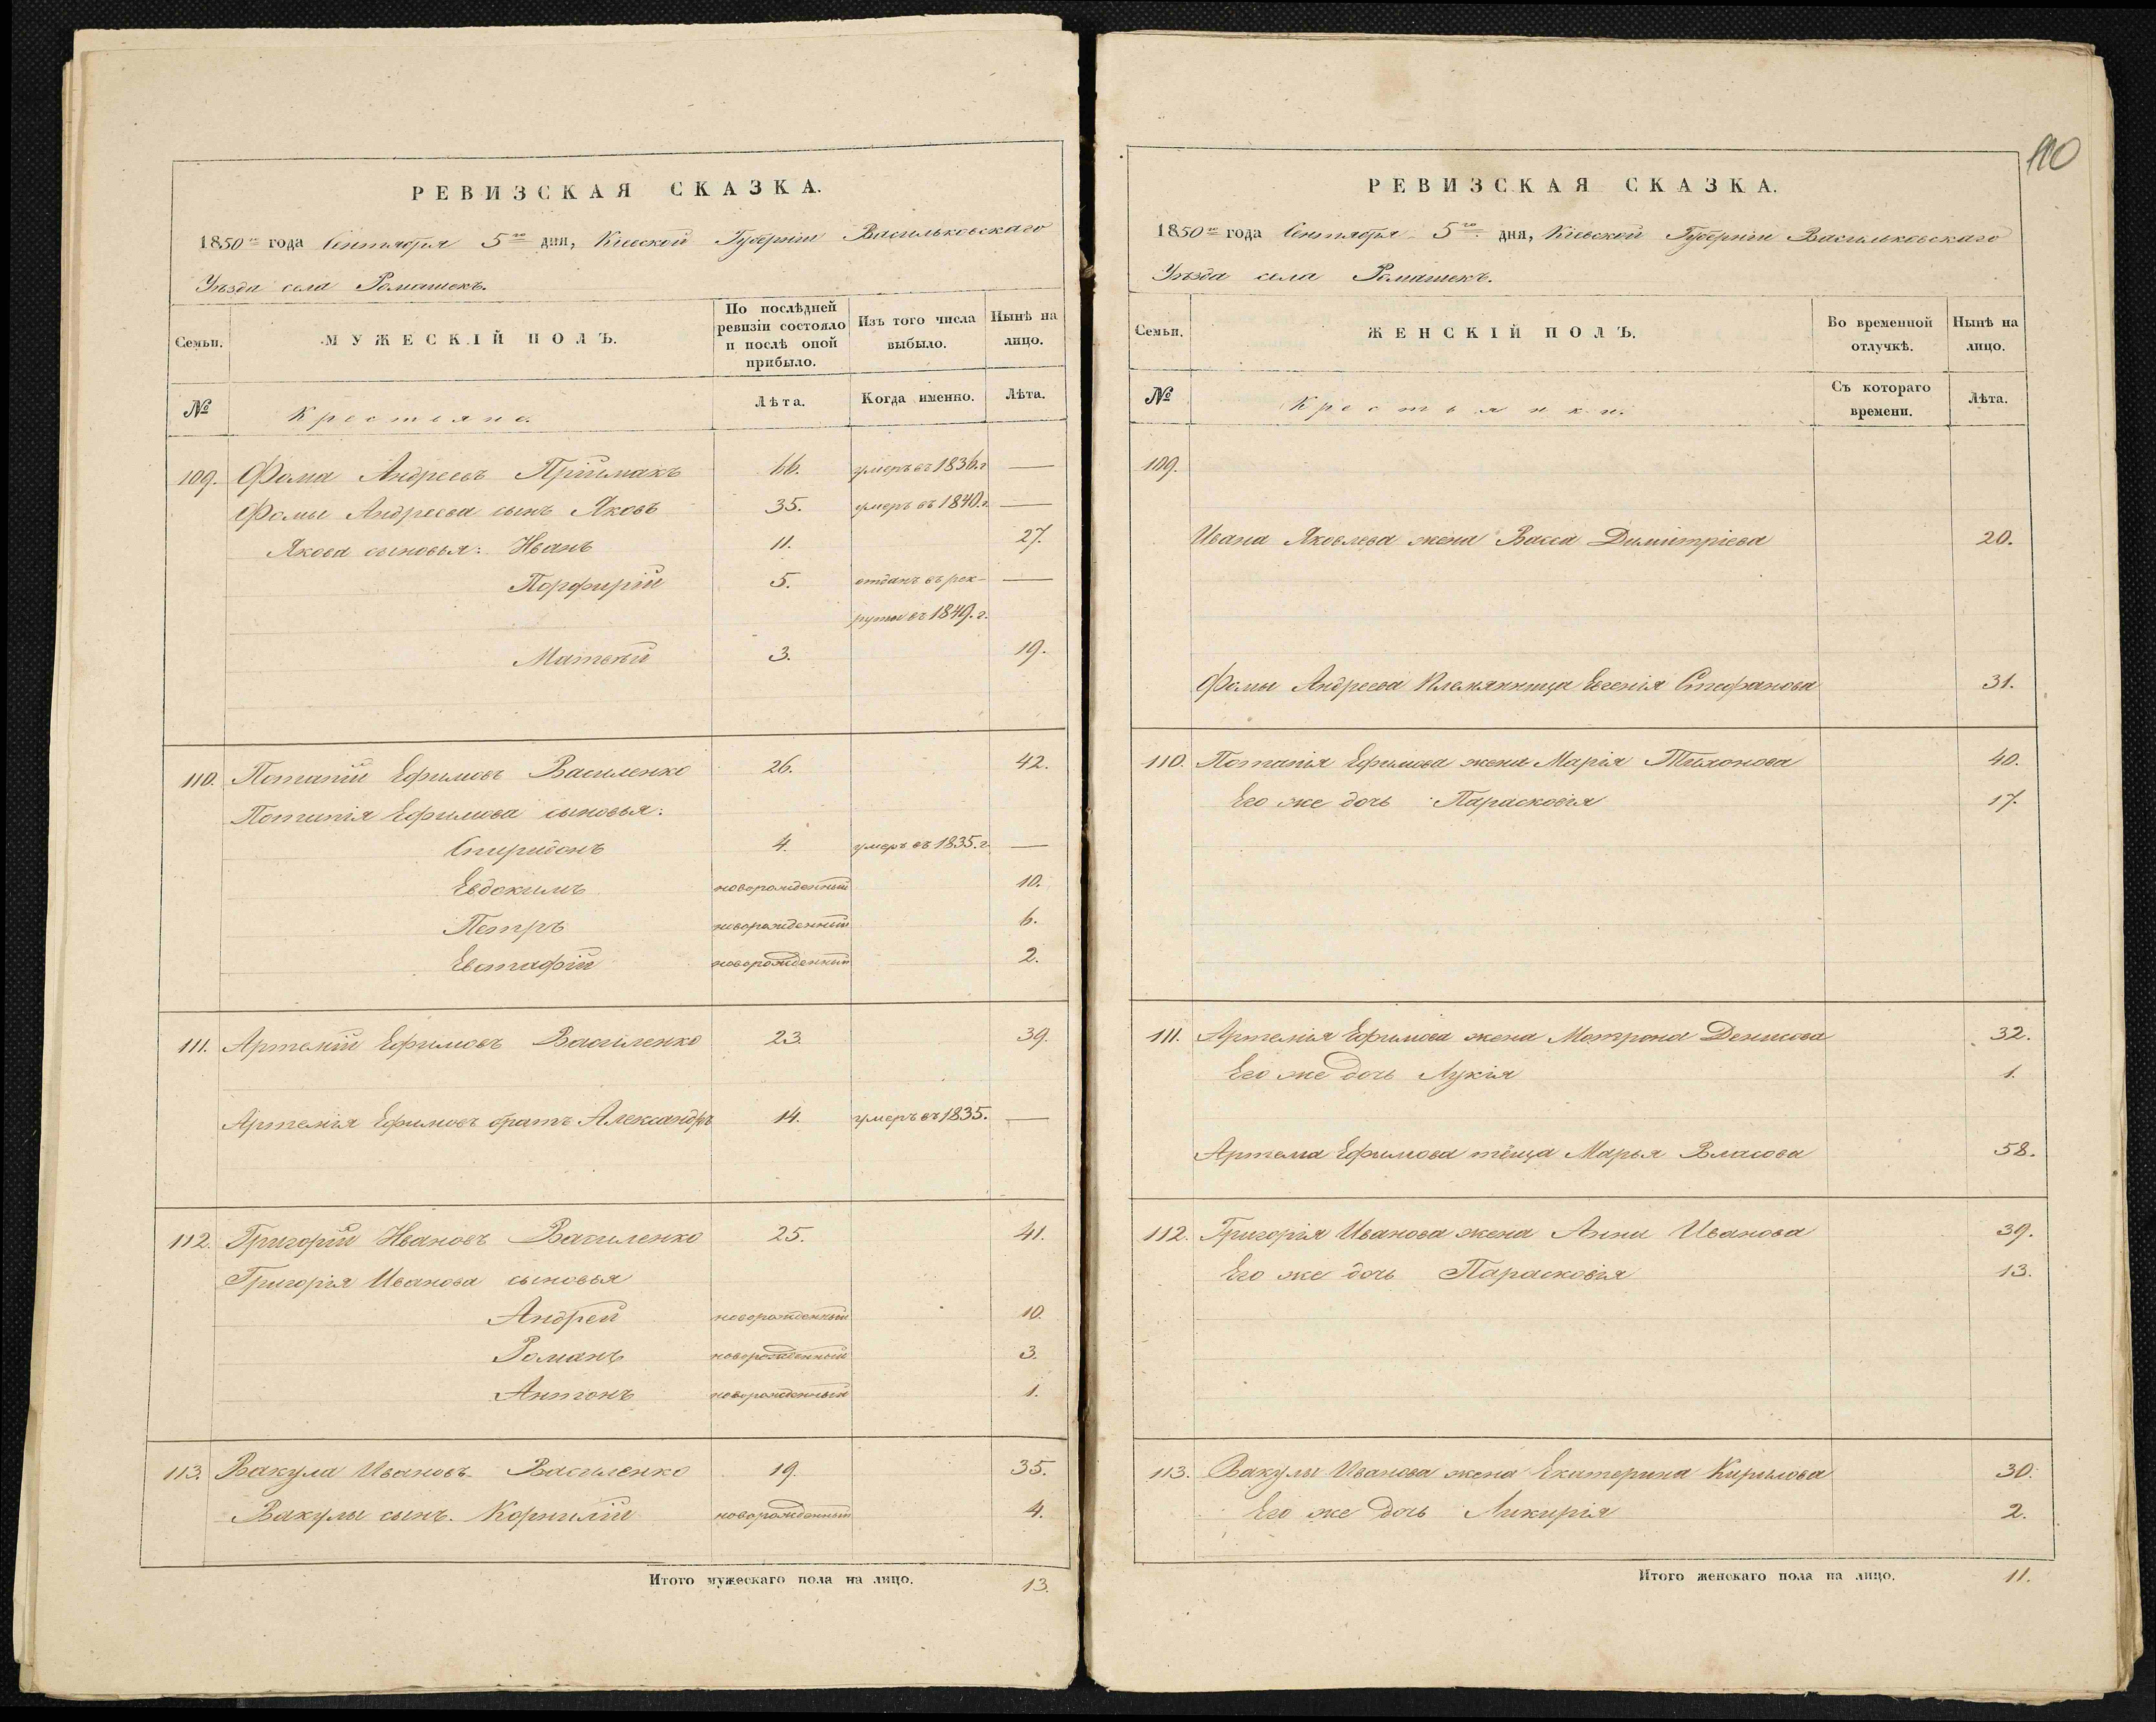 РЕВИЗСКАЯ СКАЗКА.
1850го года Сентября 5го дня, Кіевской Губерніи Васильковскаго
Уѣзда села Ромашекъ.
Семьи. МУЖЕСКІЙ ПОЛЪ. По послѣдней ревизіи состояло и послѣ оной прибыло. Изъ того числа выбыло. Нынѣ на лицо.
№ Крестьяне. Лѣта. Когда именно. Лѣта.
109. Фома Андреевъ Пріймакъ 66. умеръ въ 1836.г —
Фомы Андреева сынъ Яковъ 35. умеръ въ 1840.г. —
Якова сыновья: Иванъ 11. 27.
Порфирій 5. отданъ въ рек- —
руты въ 1849.г.
Матвѣй 3. 19.
110. Потапій Ефимовъ Василенко 26. 42.
Потапія Ефимова сыновья:
Спиридонъ 4. умеръ въ 1835.г. —
Евдокимъ новорожденный 10.
Петръ новорожденный 6.
Евстафій новорожденный 2.
111. Артемій Ефимовъ Василенко 23. 39.
Артемія Ефимовъ братъ Александръ 14. умеръ въ 1835. —
112. Григорій Ивановъ Василенко 25. 41.
Григорія Иванова сыновья
Андрей новорожденный 10.
Романъ новорожденный 3.
Антонъ новорожденный 1.
113. Вакула Ивановъ Василенко 19. 35.
Вакулы сынъ. Корнилій новорожденный 4.
Итого мужескаго пола на лицо. 13.
110
РЕВИЗСКАЯ СКАЗКА.
1850го года Сентября 5го дня, Кіевской Губерніи Васильковскаго
Уѣзда села Ромашекъ.
Семьи. ЖЕНСКІЙ ПОЛЪ. Во временной отлучкѣ. Нынѣ на лицо.
№ Крестьянки. Съ котораго времени. Лѣта.
109.
Ивана Яковлева жена Васса Димитріева 20.
Фомы Андреева племянница Евгенія Стефанова 31.
110. Потапія Ефимова жена Марія Тихонова 40.
Его же дочь Парасковія 17.
111. Артемія Ефимова жена Мотрона Денисова 32.
Его же дочь Лукія 1.
Артема Ефимова тёща Марья Власова 58.
112. Григорія Иванова жена Анна Иванова 39.
Его же дочь Парасковія 13.
113. Вакулы Иванова жена Екатерина Кирилова 30.
Его же дочь Ликирія 2.
Итого женскаго пола на лицо. 11.